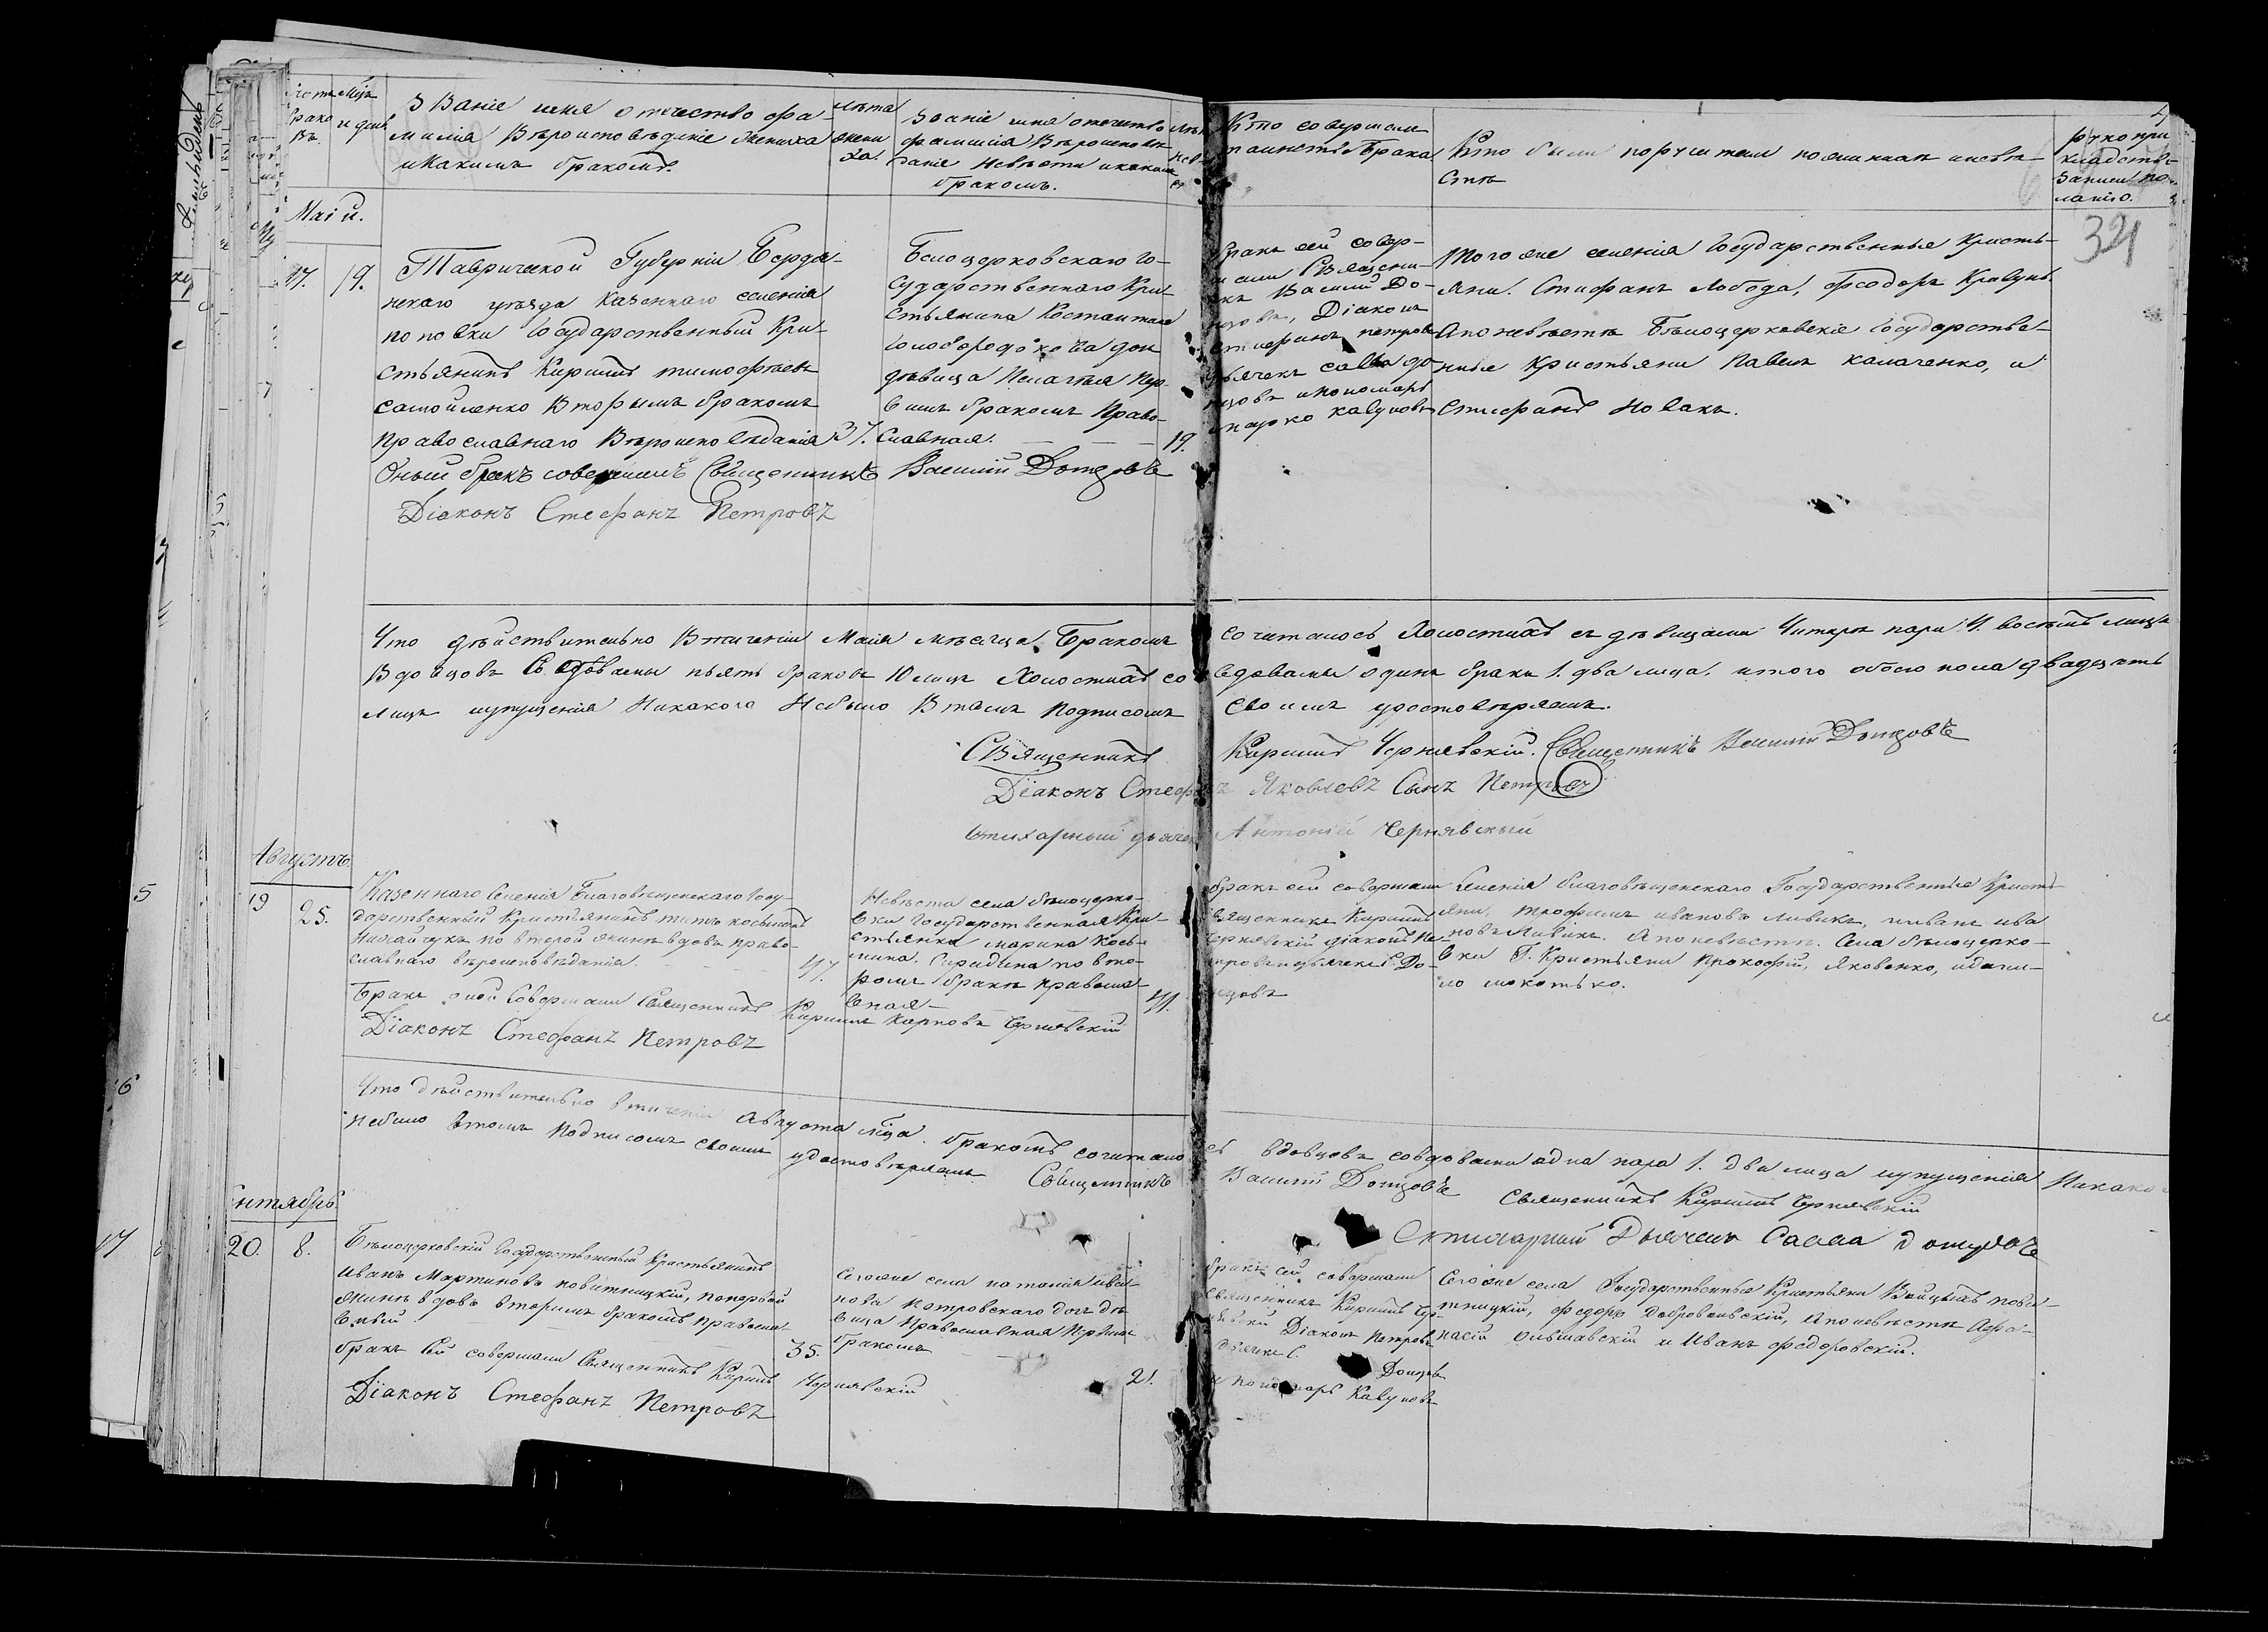 Званіе имя отчество фа-
милия Вѣроисповѣданіе жениха
и какимъ бракомъ.
лѣта
жени
ха.
Званіе имя отечество
фамилія Вѣроисповѣ
даніе Невѣсти икакимъ
бракомъ.
Кто совершалъ
таинство Брака
Кто были поручители по женихе иневѣ
стѣ
рукопри
кладство
записи по
ланію.
34
Маій.
17. 19.
Таврической Губерніи Бердя-
нскаго уѣзда Казеннаго селенія
поповки Государственный Кри-
стьянинъ Кирилъ тимофѣевъ
самойленко Вторымъ бракомъ
Православнаго Вѣроисповѣданія
37.
Белоцерковскаго Го-
сударственнаго Кри-
стьянина Костантина
Голобородька дочь
дѣвица Пелагѣя Пер-
вимъ бракомъ Право-
славная.
19.
бракъ сей совер-
шали Священи-
къ Василій До-
нцовъ, Діаконъ
стефанъ петровъ
дьячекъ савва до-
нцовъ ипономарь
марко кавуновъ
Того же селенія Государственные Кристь-
яни. Стифанъ Лобода, Феодоръ Кравунъ.
Апоневѣстѣ Бѣлоцерковскіе Государстве-
нные Кристьяни Павелъ калаченко, и
Стифанъ Новакъ.
Оный бракъ совершилъ Священникъ Василій Донцовъ
Діаконъ Стефанъ Петровъ
Что дѣйствительно Втичении Маія мѣсяца Бракомъ сочиталось Холостихъ съ дѣвицами Читыри пари 4. восѣмъ лицъ
Вдовцовъ Съ дѣвами пьять браковъ 10 лицъ Холостихъ со вдовами одинъ бракъ 1. два лица, итого обоего пола двадцать
лицъ иупущенія Никакого Небыло Втомъ Подписомъ Своимъ удостовѣряемъ.
Священникъ Кирилъ Чернявскій. Священникъ Василій Донцовъ
Діаконъ Стефанъ Яковлевъ Сынъ Петровъ
Стихарный дьячекъ Антоній Чернявскый
Августъ
19 25.
Казеннаго Селенія Благовѣщенскаго Госу-
дарственный Кристьянинъ титъ косьминъ
по второй жинѣ вдовъ право-
славнаго вѣроисповѣданія.
47.
Невѣста села бѣлоцерко-
вки Государственная Кри-
стьянка марина Козь-
мина, Сиридина по вто-
ромъ бракѣ православ-
вная
41.
бракъ сей совершали
Священникъ Кирилъ
Чернявскій діаконъ Пе-
тровъ идьячекъ С. До-
нцовъ
Селенія благовѣщенскаго Государственные Кристь
яни, трофимъ ивановъ ливикъ, иивань ива
новъ ливикъ. Апоневѣстѣ. Села бѣлоцерко-
вки Г. Кристьяни Прокофій, Яковенко, идани-
ло мокотько.
Бракъ оной Совершали Священникъ Кирилъ Карповъ Чернявскій
Діаконъ Стефанъ Петровъ
Что дѣйствительно втичении Августа мѣца. бракомъ сочиталось вдовцовъ совдовами одна пара 1. два лица иупущенія Никако
небыло втомъ Подписомъ своимъ удостовѣряемъ Священникъ Василій Донцовъ Священникъ Кирилъ Чернявскій
Стихарний Дьячекъ Савва Донцовъ
20. 8.
Бѣлоцерковскій Государственный Кристьянинъ
Иванъ Мартиновъ повитницкій, поперьвой
жинѣ вдовъ вторимъ бракомъ Правосла-
вный
35.
Сегоже села наталія ива-
нова Петровскаго дочь дѣ
вица Православная Первимъ
бракомъ
21.
бракъ сей совершали
Священникъ Кирилъ Чер-
нявскій Діаконъ Петровъ
дьячекъ С.
Донцовъ
и пономарь Кавуновъ
Сегоже села Государственные Кристьяни Войцѣхъ пови-
тницкій, федоръ Добровольскій, Апоневѣстѣ Афа-
насій Ольшавскій и Иванъ федоровскій.
бракъ Сей совершали Священникъ Кирилъ Чернявскій
Діаконъ Стефанъ Петровъ